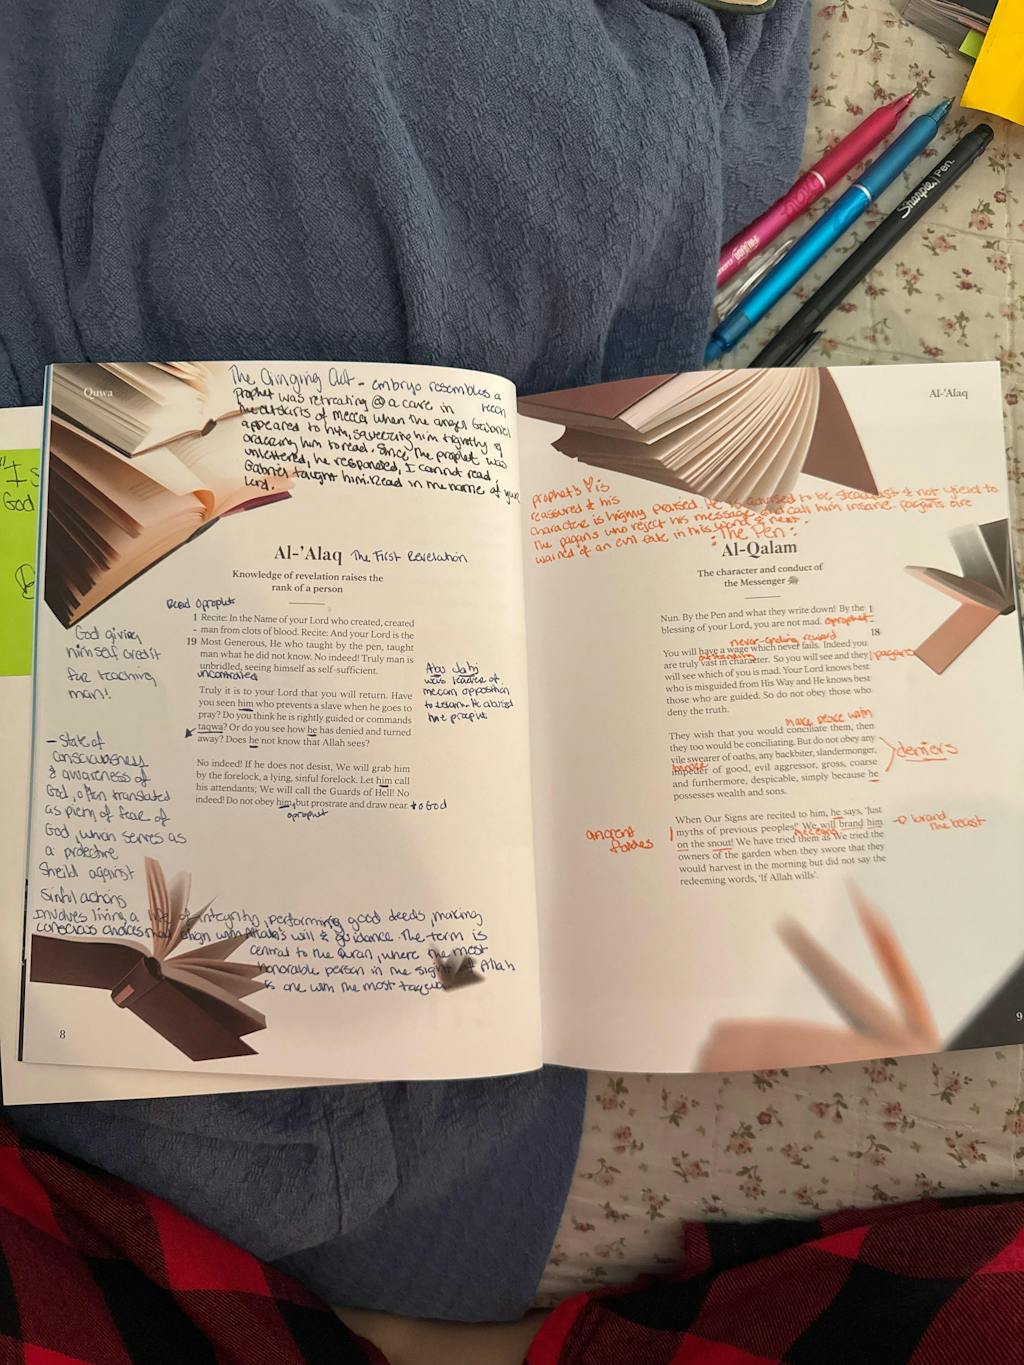 Sharpie. Pen.
"I
God
Quwa
The Clinging Clot - embryo resembles a
leech
prophet was retreating @ a cave in
the outskirts of mecca when the angel Gabriel
appeared to him, squeezing him tightly &
ordering him to read. Since the prophet was
unlettered, he responded, I cannot read!
Gabriel taught him: Read in the name of your
Lord.
Al-'Alaq The First Revelation
Knowledge of revelation raises the
rank of a person
Read O prophet
1 Recite: In the Name of your Lord who created, created
– man from clots of blood. Recite: And your Lord is the
19 Most Generous, He who taught by the pen, taught
man what he did not know. No indeed! Truly man is
unbridled, seeing himself as self-sufficient.
uncontrolled
Truly it is to your Lord that you will return. Have
you seen him who prevents a slave when he goes to
pray? Do you think he is rightly guided or commands
taqwa? Or do you see how he has denied and turned
away? Does he not know that Allah sees?
No indeed! If he does not desist, We will grab him
by the forelock, a lying, sinful forelock. Let him call
his attendants; We will call the Guards of Hell! No
indeed! Do not obey him, but prostrate and draw near. to God
O prophet
God giving
himself credit
for teaching
man!
Abu Jahl
was leader of
meccan opposition
to Islam. He abused
the prophet
-State of
consciousness
& awareness of
God, often translated
as piety of fear of
God, which serves as
a protective
Sheild against
sinful actions
Involves living a life of integrity, performing good deeds, making
conscious choices that align with Allah's will & guidance. The term is
central to the Quran, where the most
honorable person in the sight of Allah
is one with the most taqwa
8
Al-'Alaq
prophet's is
reassured & his
character is highly praised. He is advised to be steadfast & not yield to
the pagans who reject his message and call him insane. pagans are
warned of an evil fate in this world & next.
:The Pen:
Al-Qalam
The character and conduct of
the Messenger
Nun. By the Pen and what they write down! By the 1
blessing of your Lord, you are not mad. O prophet –
18
never-ending reward
You will have a wage which never fails. Indeed you
outstanding
are truly vast in character. So you will see and they pagans
will see which of you is mad. Your Lord knows best
who is misguided from His Way and He knows best
those who are guided. So do not obey those who
deny the truth.
make peace with
They wish that you would conciliate them, then
they too would be conciliating. But do not obey any
vile swearer of oaths, any backbiter, slandermonger,
deniers
impeder of good, evil aggressor, gross, coarse
and furthermore, despicable, simply because he
possesses wealth and sons.
When Our Signs are recited to him, he says, 'Just
ancient
fables
myths of previous peoples!' We will brand him
brand
the beast
on the snout! We have tried them as We tried the
owners of the garden when they swore that they
would harvest in the morning but did not say the
redeeming words, 'If Allah wills'.
9